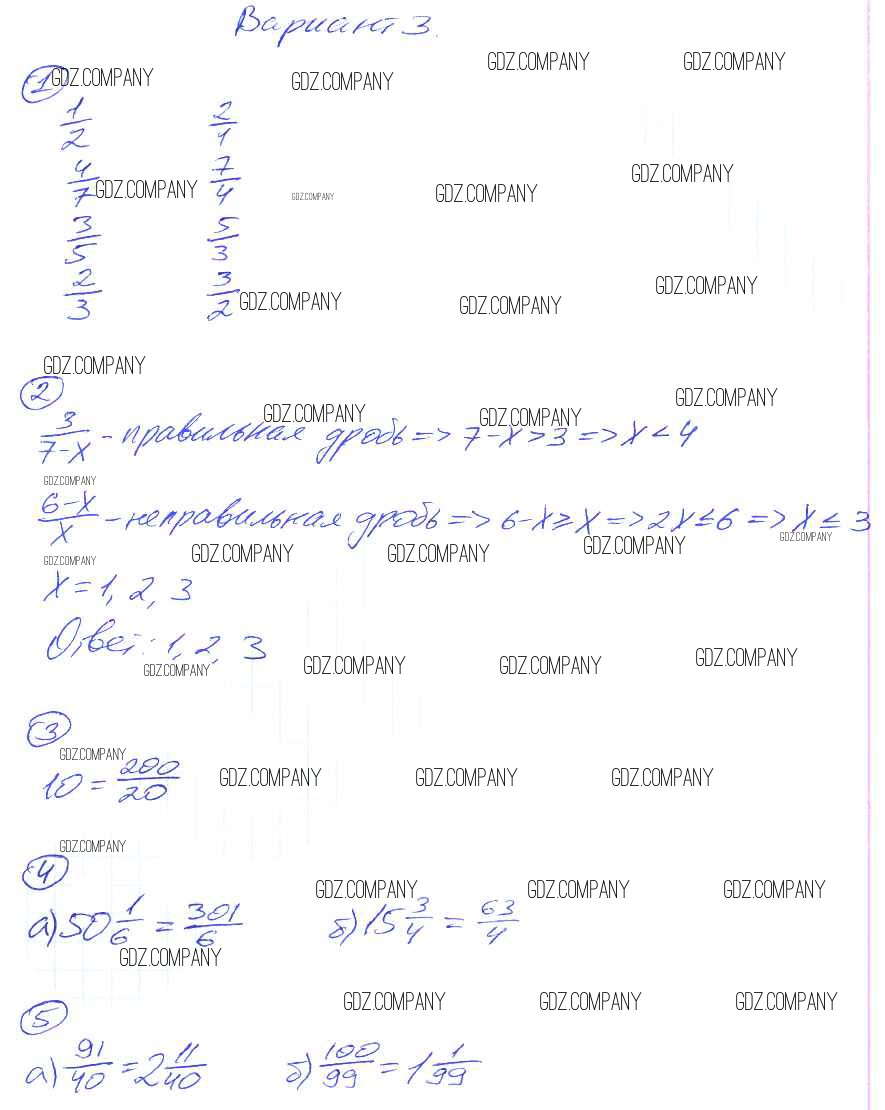 Вариант 3.
1 GDZ.COMPANY GDZ.COMPANY GDZ.COMPANY GDZ.COMPANY
1/2 2/1
4/7 GDZ.COMPANY 7/4 GDZ.COMPANY GDZ.COMPANY GDZ.COMPANY
3/5 5/3
2/3 3/2 GDZ.COMPANY GDZ.COMPANY GDZ.COMPANY
GDZ.COMPANY
2 GDZ.COMPANY GDZ.COMPANY GDZ.COMPANY
3/(7-x) - правильная дробь => 7-x > 3 => x < 4
GDZ.COMPANY
(6-x)/x - неправильная дробь => 6-x ≥ x => 2x ≤ 6 => x ≤ 3
GDZ.COMPANY GDZ.COMPANY GDZ.COMPANY GDZ.COMPANY GDZ.COMPANY
x = 1, 2, 3
Ответ: 1, 2, 3
GDZ.COMPANY GDZ.COMPANY GDZ.COMPANY GDZ.COMPANY
3
GDZ.COMPANY
10 = 200/20 GDZ.COMPANY GDZ.COMPANY GDZ.COMPANY
GDZ.COMPANY
4 GDZ.COMPANY GDZ.COMPANY GDZ.COMPANY
а) 50 1/6 = 301/6 б) 15 3/4 = 63/4
GDZ.COMPANY
5 GDZ.COMPANY GDZ.COMPANY GDZ.COMPANY
а) 91/40 = 2 11/40 б) 100/99 = 1 1/99